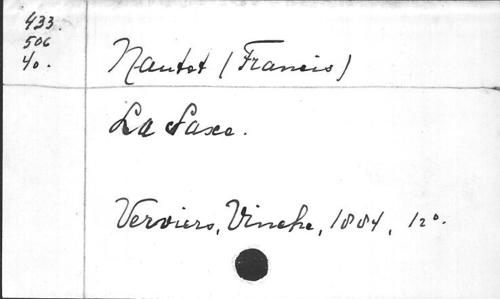 433.
506
40.
Nautet (Francis)
La Saxe.
Verviers, Vinche, 1884, 12°.